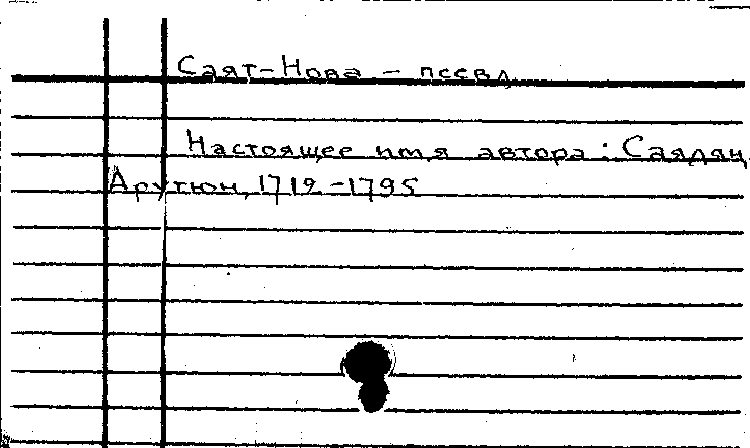 Саят-Нова – псевд.
Настоящее имя автора: Саядян,
Арутюн, 1712-1795